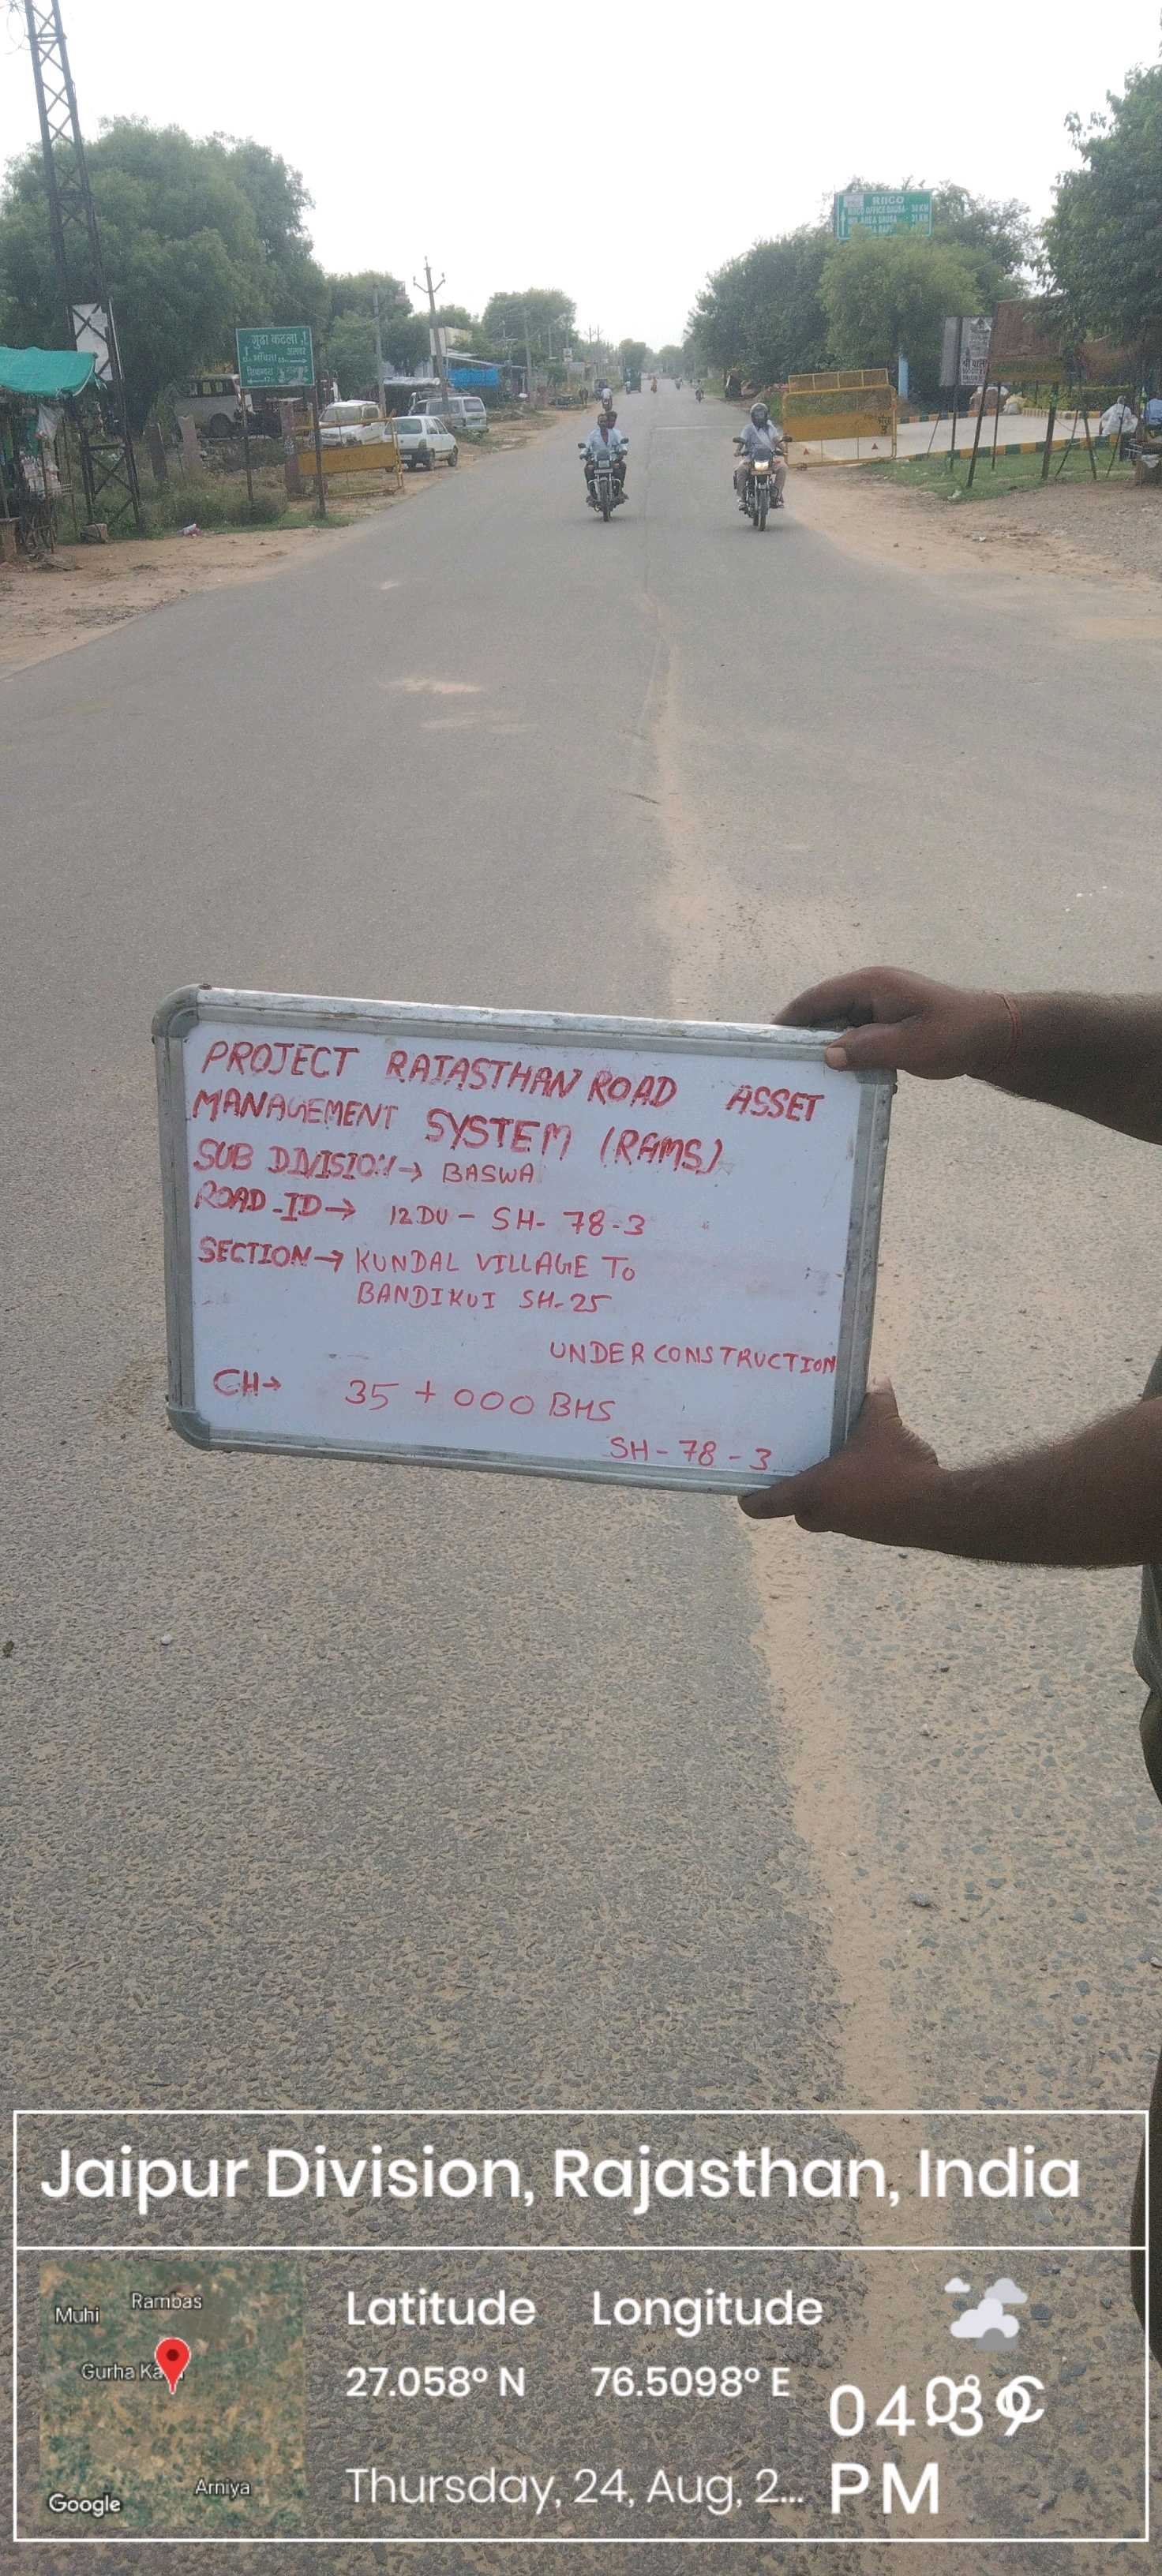 RIICO
RIICO OFFICE DAUSA-
गुढा कटला
अलवर
PROJECT RAJASTHAN ROAD ASSET
MANAGEMENT SYSTEM (RAMS)
SUB DIVISION→ BASWA
ROAD-ID→ 12DU- SH- 78-3
SECTION→ KUNDAL VILLAGE To
BANDIKUI SH-25
UNDER CONSTRUCTION
CH→ 35 + 000 BHS
SH-78-3
Jaipur Division, Rajasthan, India
Muhi
Rambas
Gurha
Arniya
Google
Latitude Longitude
27.058° N 76.5098° E
Thursday, 24, Aug, 2...
PM